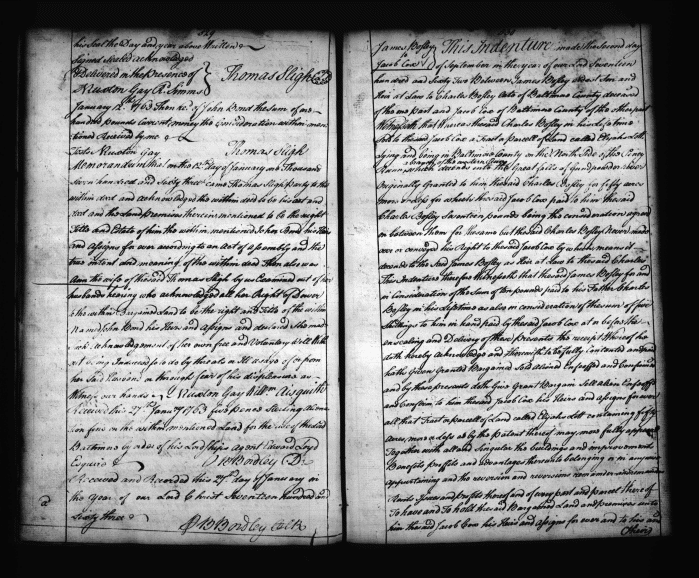 529
his Seal the Day and year above Written
Signed Sealed acknowledged
& Delivered in the Presence of
Thomas Sligh
Nicaxon Gay R. Simms
January 12th 1763 Then rec'd of John Bond the sum of one
hundred pounds Current money the Consideration within men
tioned Received by me
Thomas Sligh
Test Nicaxon Gay
Memorandum that on the 12th day of January one Thousand
Seven hundred and Sixty three came Thomas Sligh party to the
within deed and acknowledged the within deed to be his act and
deed and the Land premises therein mentioned to be the right
Title and Estate of him the within mentioned John Bond his Heirs
and Assigns for ever according to an Act of assembly and the
true intent and meaning of the within deed Then also was
Ann the wife of the said Thomas Sligh by us Examined out of her
husbands hearing who acknowledged all her Right of Dower
the within Bargained Land to be the right and Title of the within
Named John Bond his Heirs and Assigns and declared she made
acknowledgement of her own free and Voluntary Will &
not being Induced so to do by threats or Ill usage of or from
her said Husband or through fear of his displeasure as
Witness our hands Nicaxon Gay Willm Aisquith
Received this 27th Jany 1763 five pence Sterling Aliena
tion fine on the within mentioned Land for the use of the said
Baltimore by order of his Lordships agent Edward Loyd
Esquire
JB Bordley Dr
Received and Recorded this 27th day of January in
the Year of our Lord Christ Seventeen hundred and
Sixty three
JB Bordley Clk
James Bosley
Jacob Cox
This Indenture made the Second day
of September in the year of our Lord Seventeen
hundred and Sixty Two Between James Bosley eldest Son and
Heir at Law to Charles Bosley late of Baltimore County deceased
of the one part and Jacob Cox of Baltimore County of the other part
Witnesseth that Whereas the said Charles Bosley in his life time
Sold to the said Jacob Cox a Tract or parcell of Land called
Lying and being in Baltimore County on the North Side of the
descends into the Great falls of Gunpowder river
Originally Granted to him the said Charles Bosley for fifty acres
more or less for which the said Jacob Cox paid to him the said
Charles Bosley Seventeen pounds being the consideration agreed
on between them for the same but the said Charles Bosley Never made
over or conveyed his Right to the said Jacob Cox by which means it
descends to the said James Bosley as Heir at Law to the said Charles
This Indenture therefore Witnesseth that the said James Bosley for and
in Consideration of the Sum of ten pounds paid to his Father Charles
Bosley in his lifetime as also in consideration of the sum of five
Shillings to him in hand paid by the said Jacob Cox at or before the
ensealing and Delivery of these Presents the receipt thereof he
doth hereby acknowledge and therewith to be fully contented and paid
hath Given Granted Bargained Sold aliened Enfeoffed and Confirmed
and by these presents doth Give Grant Bargain Sell Alien Enfeoff
and Confirm to him the said Jacob Cox his Heirs and Assigns for ever
all that Tract or parcell of Land called containing fifty
Acres, more or less as by the Patent thereof may more fully appear
Together with all and Singular the buildings and improvements
Benefits profits and advantages thereunto belonging or in any wise
appertaining and the reversion and reversions remainder and remainders
Rents Issues and profits thereof and of every part and parcel thereof
To have and To hold the said Bargained Land and premises unto
him the said Jacob Cox his Heirs and Assigns for ever and to his and